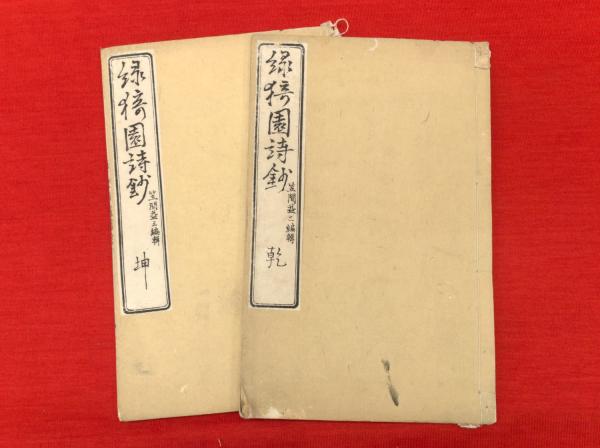 緑猗園詩鈔
笠間益三編輯
乾
緑猗園詩鈔
笠間益三編輯
坤